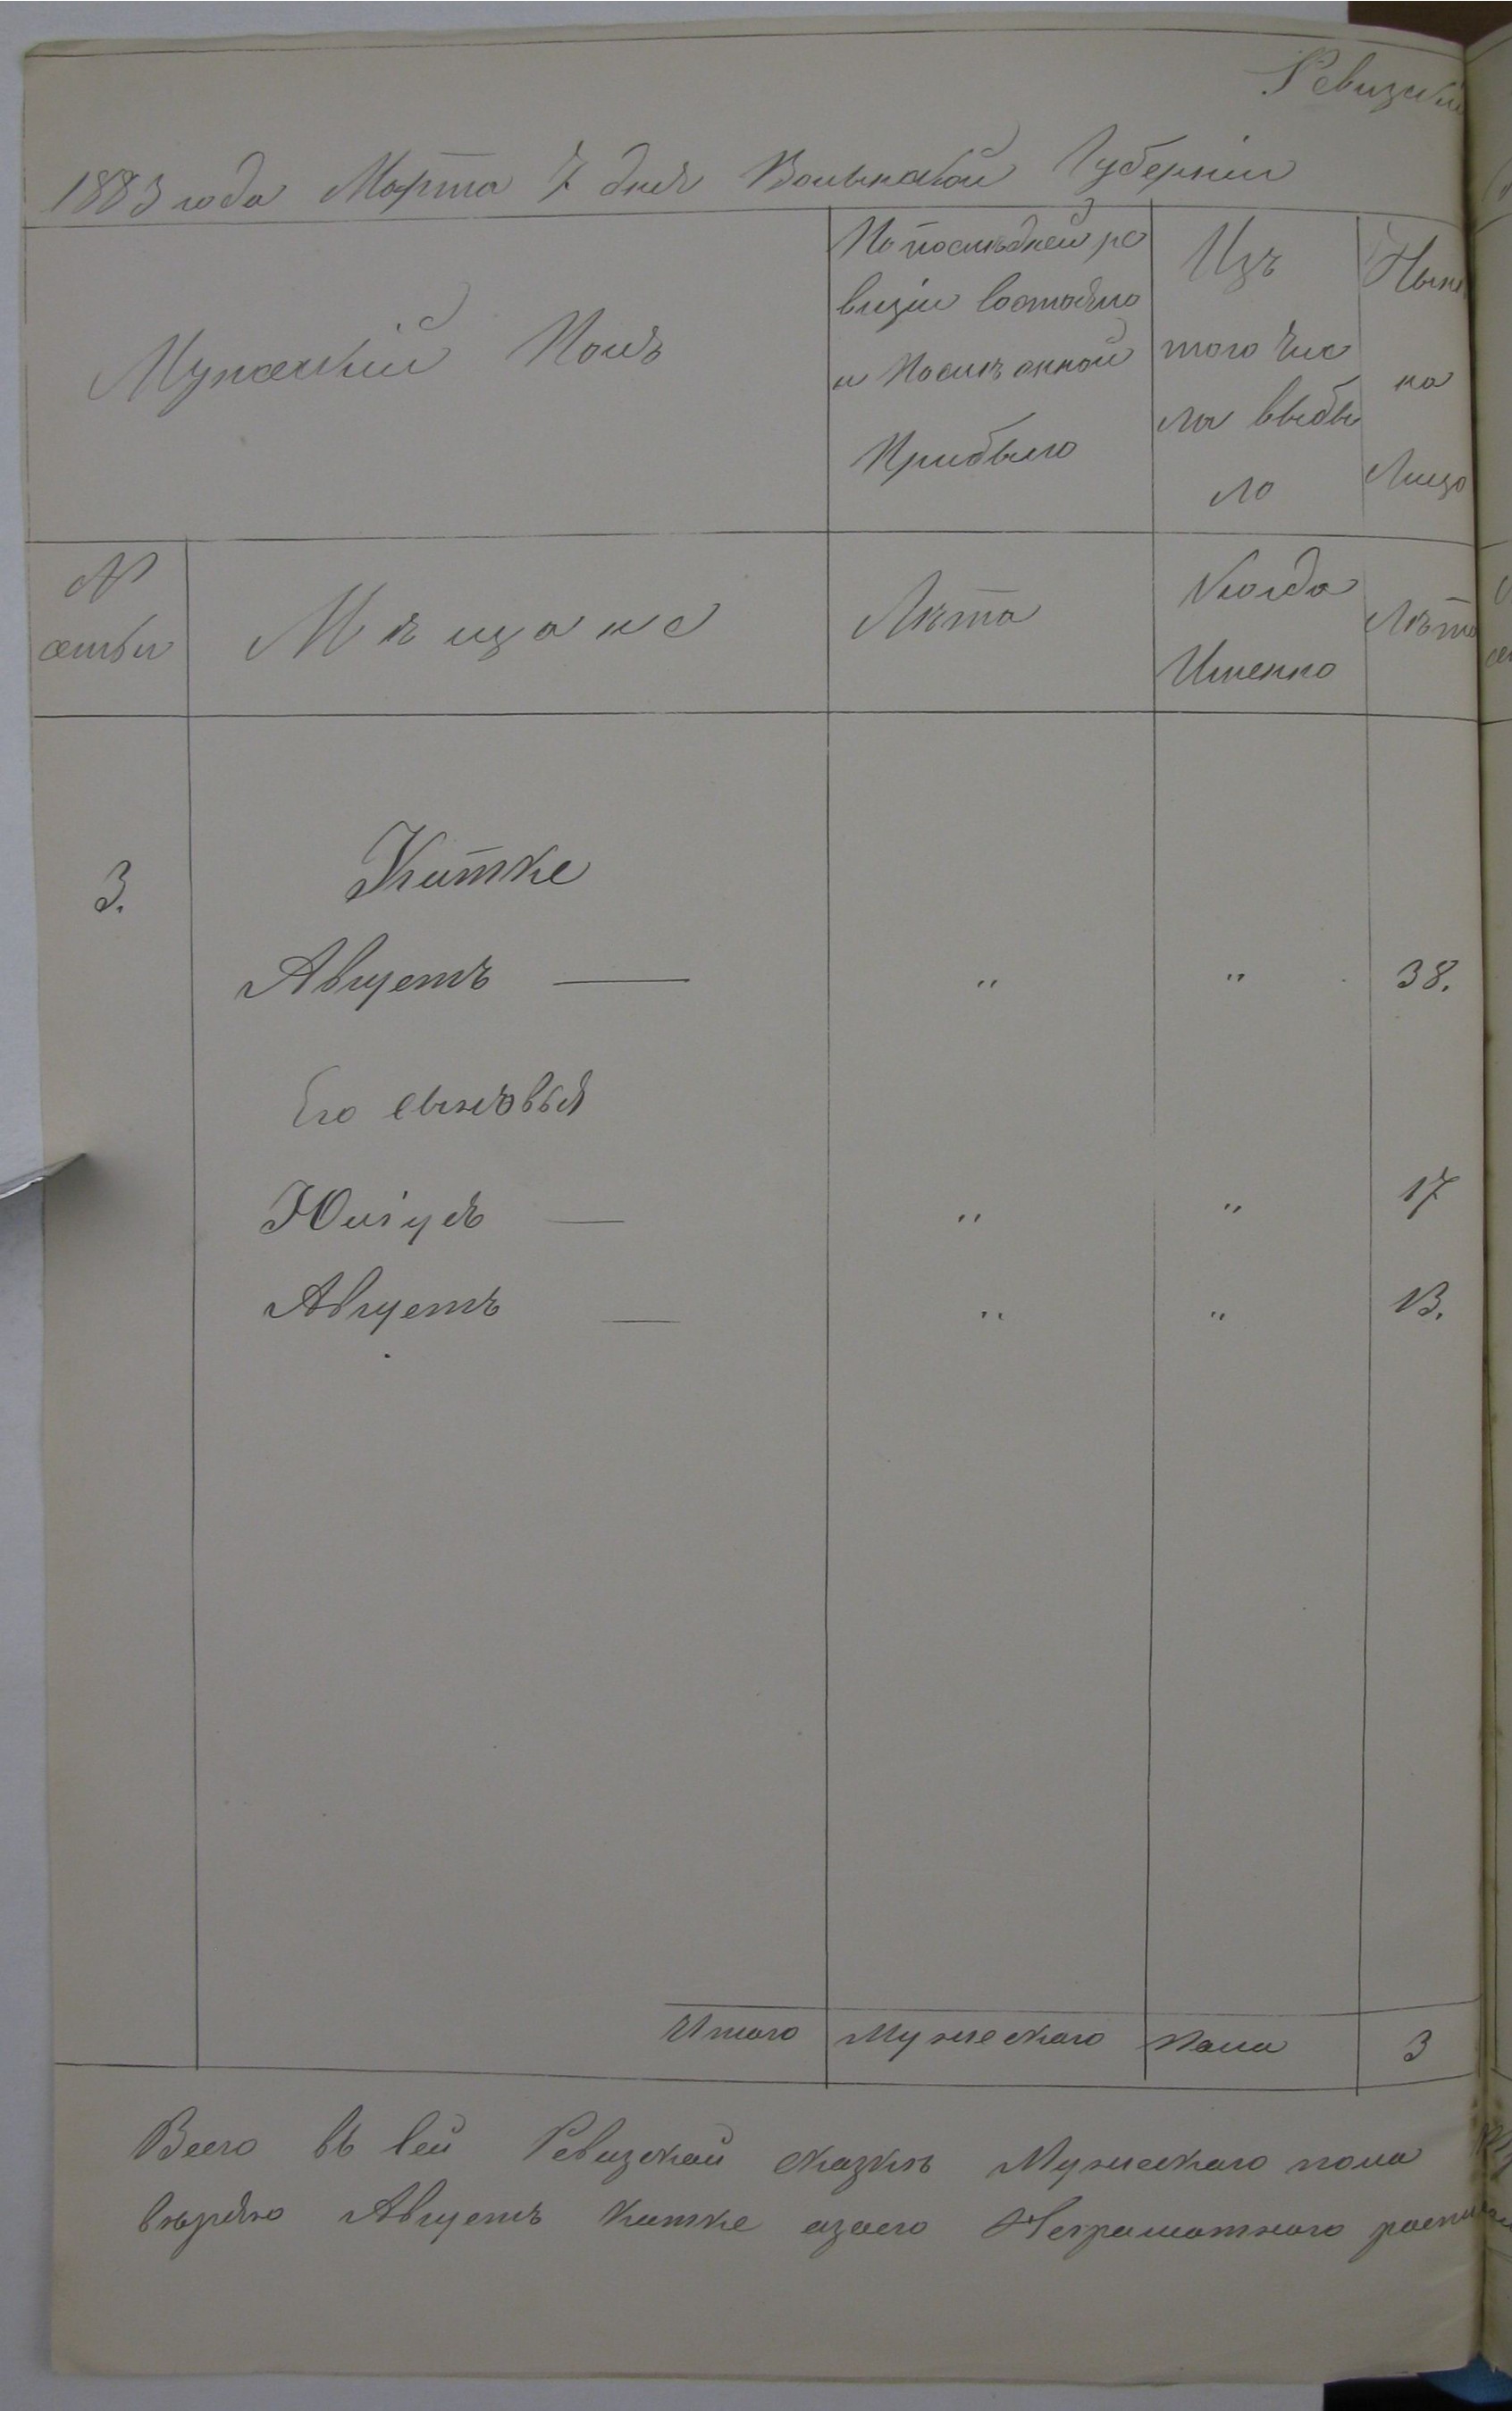 Ревизскі
1883 года Марта 7 дня Волынской Губерніи
Мужескій Полъ
По последней ре
визіи состояло
и После оной
Прибыло
Изъ
того чис
ла выбы
ло
Ныне
на
Лицо
№
семьи
Мѣщане
Лѣта
Когда
Именно
Лѣта
3.
Китке
Августъ — " " 38.
Его сыновья
Юліусъ — " " 17
Августъ — " " 13.
Итого Мужескаго Пола 3
Всего въ сей Ревизской сказкѣ Мужескаго пола
Августъ Китке азаего Неграмотнаго